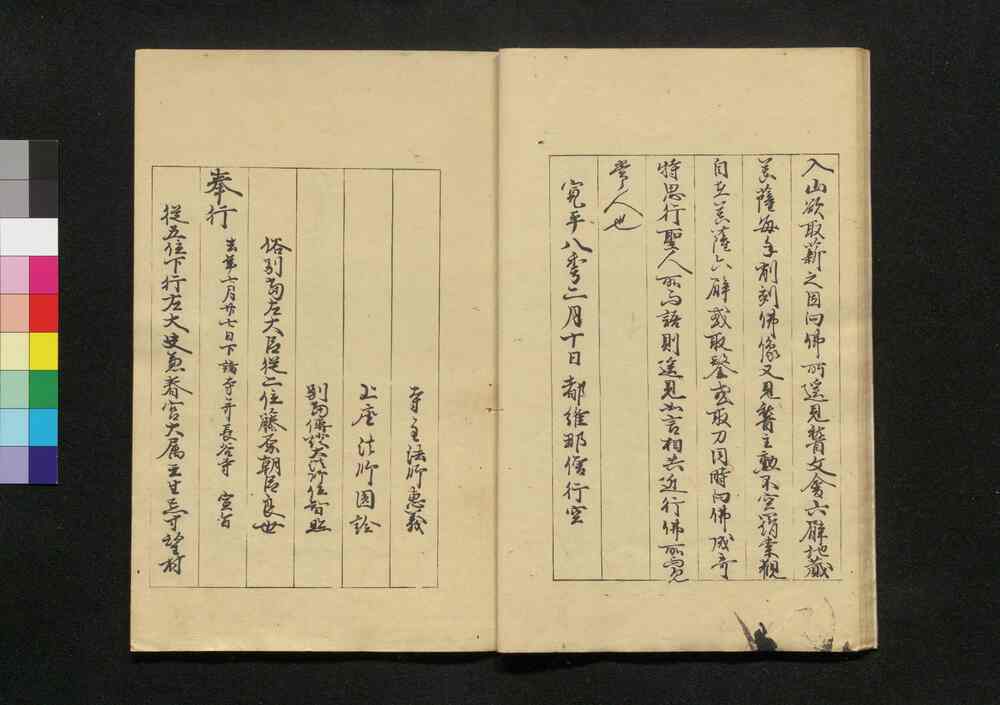 入山欲取薪之因向佛所遥見稽文會六臂地蔵
菩薩每手削刻佛像又見稽主勲不空羂索観
自在菩薩六臂或取鑿或取刀同時向佛成奇
特思行聖人所而語則遥見如言相共近行佛所完
常人也
寛平八年二月十日 都維那僧行空
寺主法師恵義
上座法師圓詮
別當傳燈大法師位智照
俗別當左大臣従二位藤原朝臣良世
奉行 去年七月廿七日下諸寺并長谷寺 宣旨
従五位下行左大史兼春宮大属壬生忌寸望材